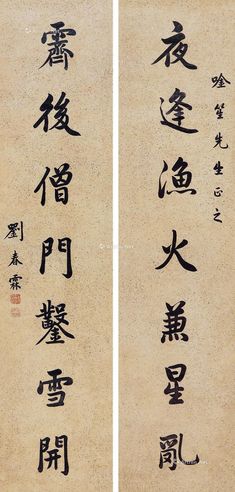 唫笙先生正之
夜逢漁火兼星亂
霽後僧門鑿雪開
劉春霖